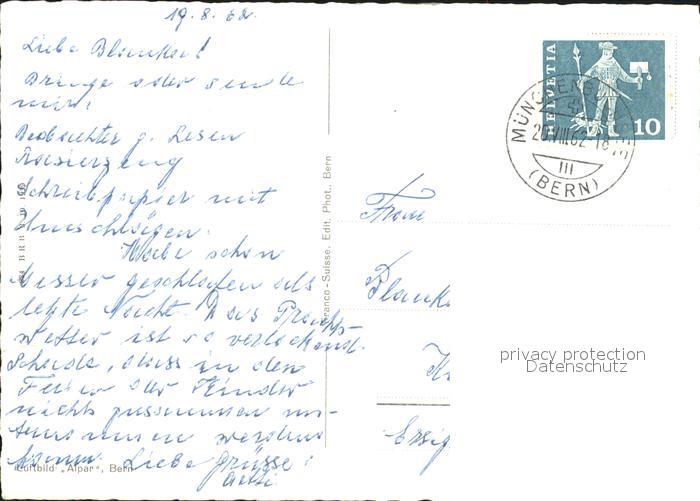 19.8.62.
Liebe
Bringe oder sende
mir:
Beobachter z. Lesen
Rasierzeug
Schreibpapier mit
Umschlägen.
Habe schon
besser geschlafen als
letzte Nacht. Das Pracht-
wetter ist so verlockend.
Schade, dass in den
Ferien der Kinder
nichts zusammen un-
ternommen werden
kann. Liebe Grüsse:
Luftbild „Alpar", Bern
Franco-Suisse, Edit. Phot., Bern
HELVETIA
10
MÜNCHENBUCHSEE
20.VIII.62-18
III
(BERN)
Frau
privacy protection
Datenschutz